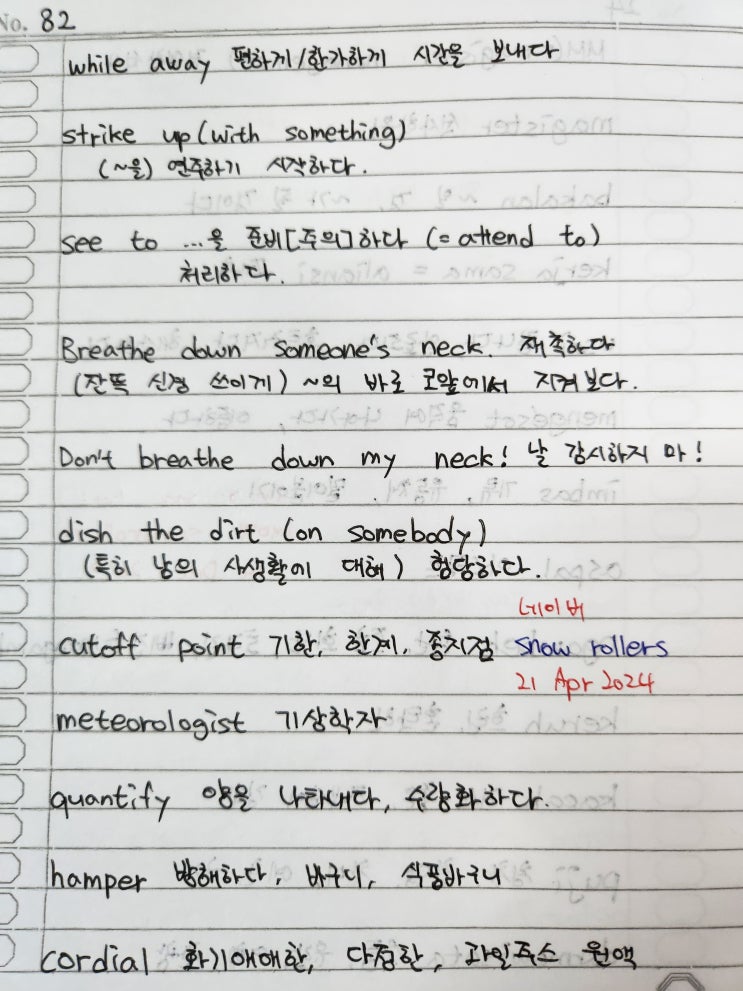 No. 82
while away 편하게/한가하게 시간을 보내다
strike up (with something)
(~을) 연주하기 시작하다.
see to ...을 준비[주의]하다 (= attend to)
처리하다.
Breathe down someone's neck. 재촉하다
(잔뜩 신경 쓰이게) ~의 바로 코앞에서 지켜보다.
Don't breathe down my neck! 날 감시하지 마!
dish the dirt (on somebody)
(특히 남의 사생활에 대해) 험담하다.
네이버
cutoff point 기한, 한계, 종지점 snow rollers
21 Apr 2024
meteorologist 기상학자
quantify 양을 나타내다, 수량화하다.
hamper 방해하다, 바구니, 식품바구니
cordial 화기애애한, 다정한, 과일주스 원액